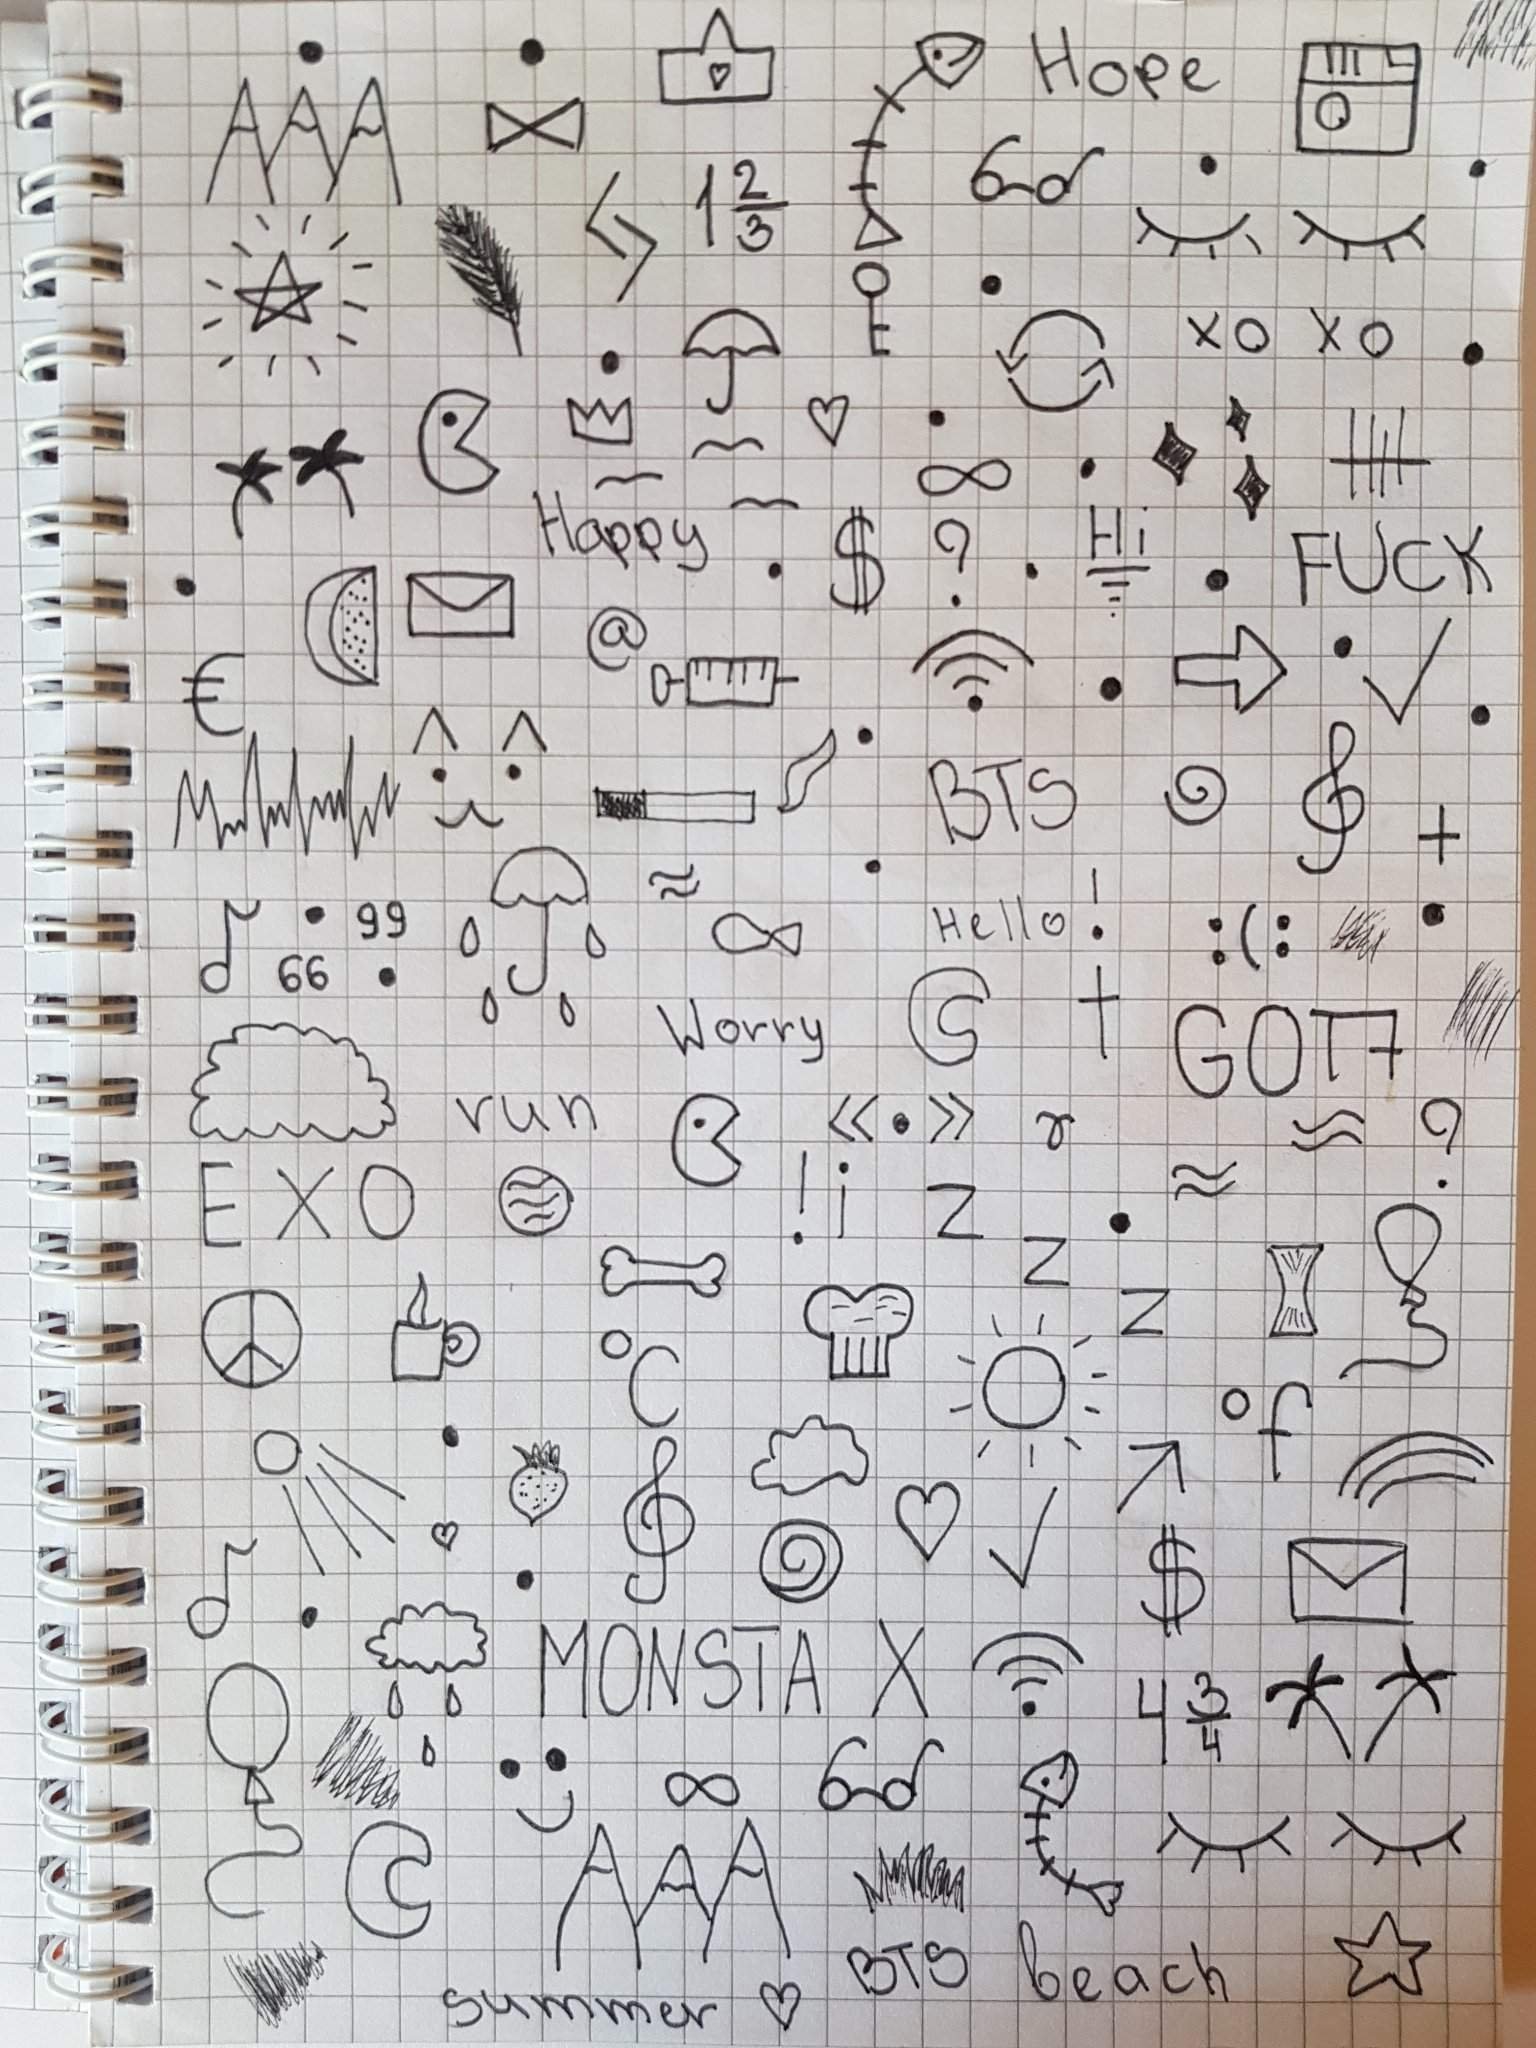 Hope
1 2/3
xo xo
Happy
$ ? Hi FUCK
@
€
BTS
+
99
66
Hello!
:(:
Worry
GOT7
run
« • »
r
?
EXO
! i z
z
z
°C
°f
$
MONSTA X
4 3/4
BTS beach
summer